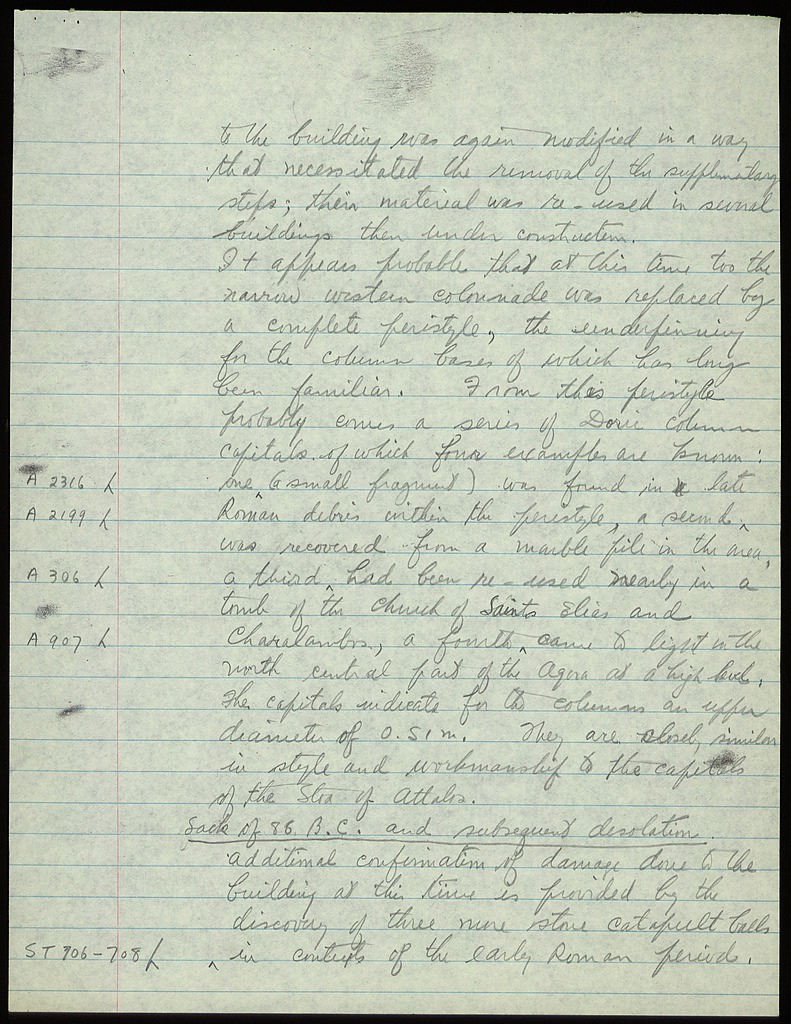 to the building was again modified in a way
that necessitated the removal of the supplementary
steps; their material was re-used in several
buildings then under construction.
It appears probable that at this time too the
narrow western colonnade was replaced by
a complete peristyle, the underpinning
for the column bases of which has long
been familiar. From this peristyle
probably comes a series of Doric column
capitals of which four examples are known:
A 2316 one (a small fragment) was found in late
A 2199 Roman debris within the peristyle, a second
was recovered from a marble pile in the area,
A 306 a third had been re-used nearly in a
tomb of the Church of Saints Elias and
A 907 Charalambos, a fourth came to light in the
north central part of the Agora at a high level.
The capitals indicate for the columns an upper
diameter of 0.51 m. They are closely similar
in style and workmanship to the capitals
of the Stoa of Attalos.
Sack of 86 B.C. and subsequent desolation.
additional confirmation of damage done to the
building at this time is provided by the
discovery of three more stone catapult balls
ST 706-708 in contexts of the early Roman period.